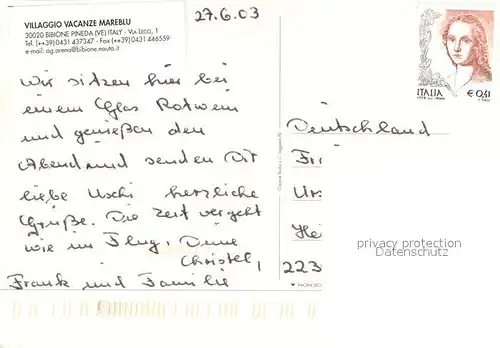 27.6.03
VILLAGGIO VACANZE MAREBLU
30020 BIBIONE PINEDA (VE) ITALY - Via Leco, 1
Tel. (++39)0431 437347 - Fax (++39)0431 446559
e-mail: ag.arena@bibione.nauta.it
Wir sitzen hier bei
einem Glas Rotwein
und genießen den
Abend und senden Dir
liebe Uschi herzliche
Grüße. Die Zeit vergeht
wie im Flug. Deine
Christel,
Frank und Familie
ITALIA
€ 0,41
Deutschland
Fr
Ur
He
223
privacy protection
Datenschutz